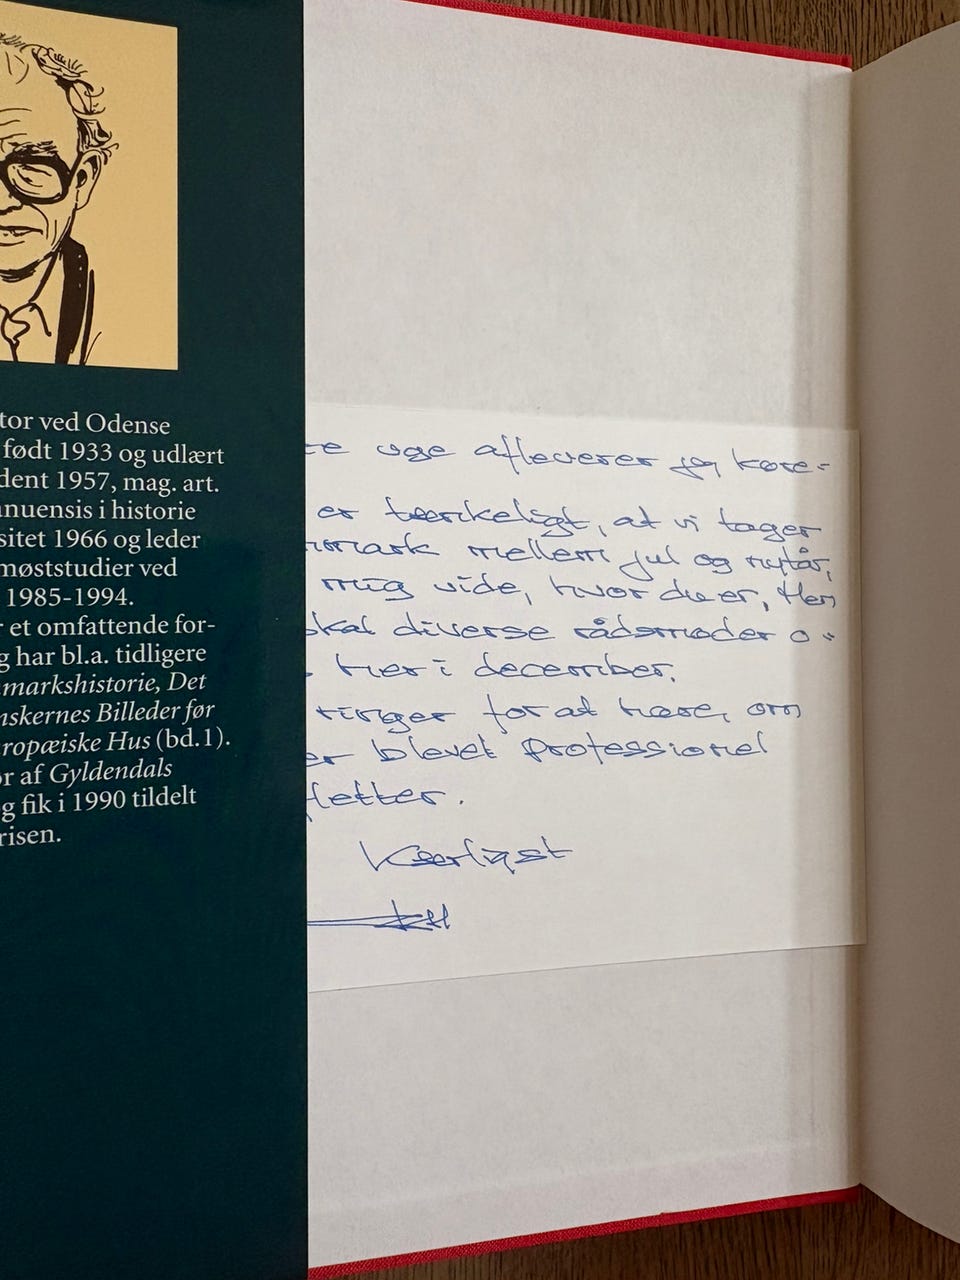 tor ved Odense
født 1933 og udlært
dent 1957, mag. art.
nuensis i historie
sitet 1966 og leder
møststudier ved
1985-1994.
r et omfattende for-
g har bl.a. tidligere
markshistorie, Det
nskernes Billeder før
ropæiske Hus (bd.1).
or af Gyldendals
g fik i 1990 tildelt
risen.
te uge afleverer jeg køre-
er tænkeligt, at vi tager
nmark mellem jul og nytår,
mig vide, hvor du er, Hen
skal diverse rådsmøder o
her i december.
ringer for at høre, om
er blevet professionel
fletter.
Kærligst